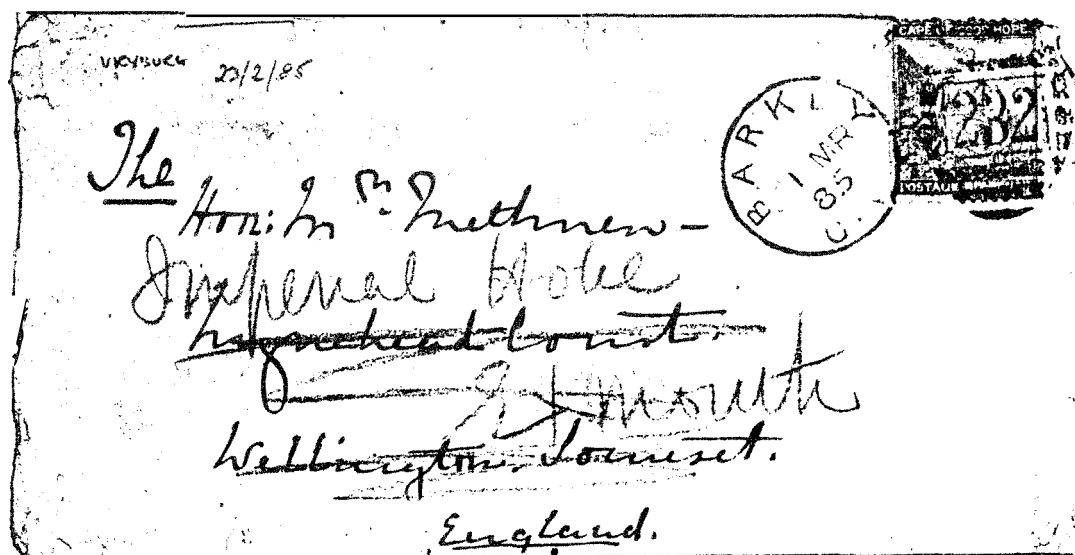 VRYBURG 23/2/85
CAPE OF GOOD HOPE
232
POSTAGE
BARKLY
1 MR
85
C.
The
Hon: Mrs. Methuen -
Imperial Hotel
Nynehead Court.
Exmouth
Wellington. Somerset.
England.